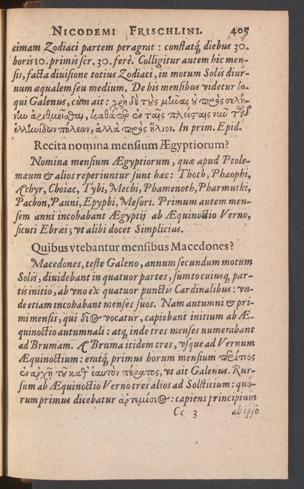 NICODEMI FRISCHLINI. 405
cimam Zodiaci partem peragrat: constatq́; diebus 30.
horis 10. primis scr. 30. ferè. Colligitur autem hic men-
sis, facta diuisione totius Zodiaci, in motum Solis diur-
num æqualem seu medium. De his mensibus videtur lo-
qui Galenus, cùm ait: χρὴ δὲ τοὺς μῆνας οὐ πρὸς σελή-
νην ἀριθμεῖσθαι, καθάπερ ἐν ταῖς πλείσταις νῦν τῶν
ἑλληνίδων πόλεων, ἀλλὰ πρὸς ἥλιον. In prim. Epid.
Recita nomina mensium Ægyptiorum?
Nomina mensium Ægyptiorum, quæ apud Ptole-
mæum & alios reperiuntur sunt hæc: Thoth, Phaophi,
Athyr, Choiac, Tybi, Mechi, Phamenoth, Pharmuthi,
Pachon, Pauni, Epyphi, Mesori. Primum autem men-
sem anni incohabant Ægyptij ab Æquinoctio Verno,
sicuti Ebræi, vt alibi docet Simplicius.
Quibus vtebantur mensibus Macedones?
Macedones, teste Galeno, annum secundum motum
Solis, diuidebant in quatuor partes, sumto cuiusq; par-
tis initio, ab vno ex quatuor punctis Cardinalibus: vn-
de etiam incohabant menses suos. Nam autumni & pri-
mi mensis, qui δῖος vocatur, capiebant initium ab Æ-
quinoctio autumnali: atq; inde tres menses numerabant
ad Brumam. A Bruma itidem tres, vsque ad Vernum
Æquinoctium: eratq́; primus horum mensium περίτιος
ἐν ἀρχῇ τοῦ καθ' ἑαυτὸν πέρατος, vt ait Galenus. Rur-
sum ab Æquinoctio Verno tres alios ad Solstitium: quo-
rum primus dicebatur ἀρτεμίσιος: capiens principium
Cc 3 ab ipso